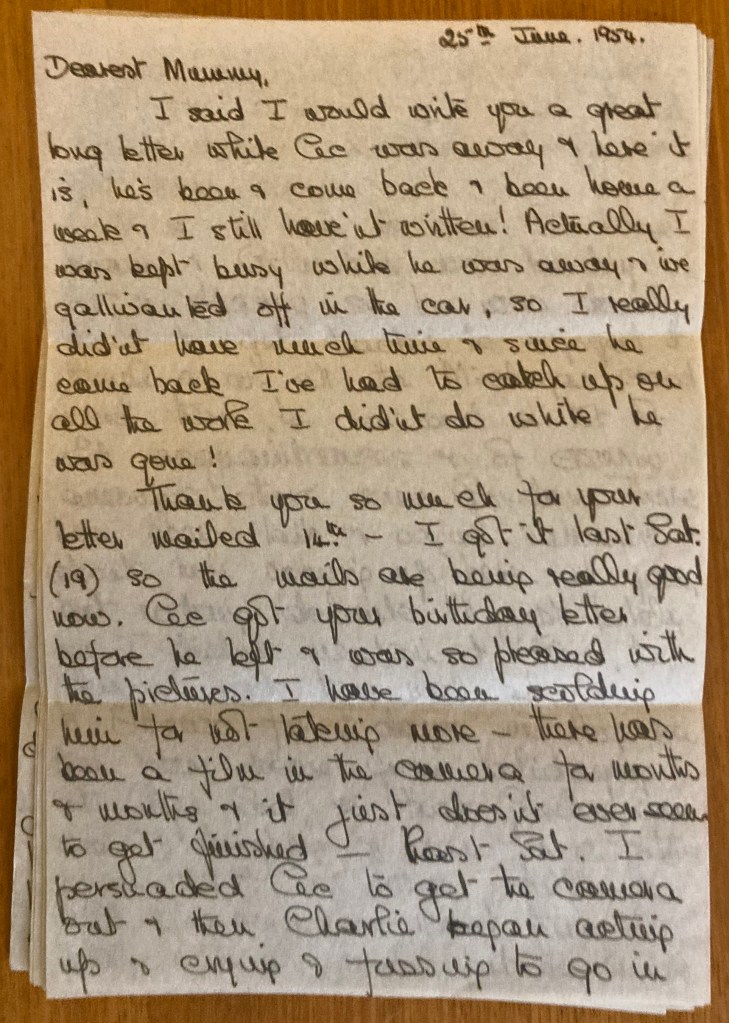 25th June. 1954.
Dearest Mummy,
I said I would write you a great
long letter while Cec was away & here it
is, he's been & come back & been home a
week & I still have'nt written! Actually I
was kept busy while he was away & i've
gallivanted off in the car, so I really
did'nt have much time & since he
came back I've had to catch up on
all the work I did'nt do while he
was gone!
Thank you so much for your
letter mailed 14th - I got it last Sat.
(19) so the mails are being really good
now. Cec got your birthday letter
before he left & was so pleased with
the pictures. I have been scolding
him for not taking more - there has
been a film in the camera for months
& months & it just does'nt ever seem
to get finished - Last Sat. I
persuaded Cec to get the camera
out & then Charlie began acting
up & crying & fussing to go in